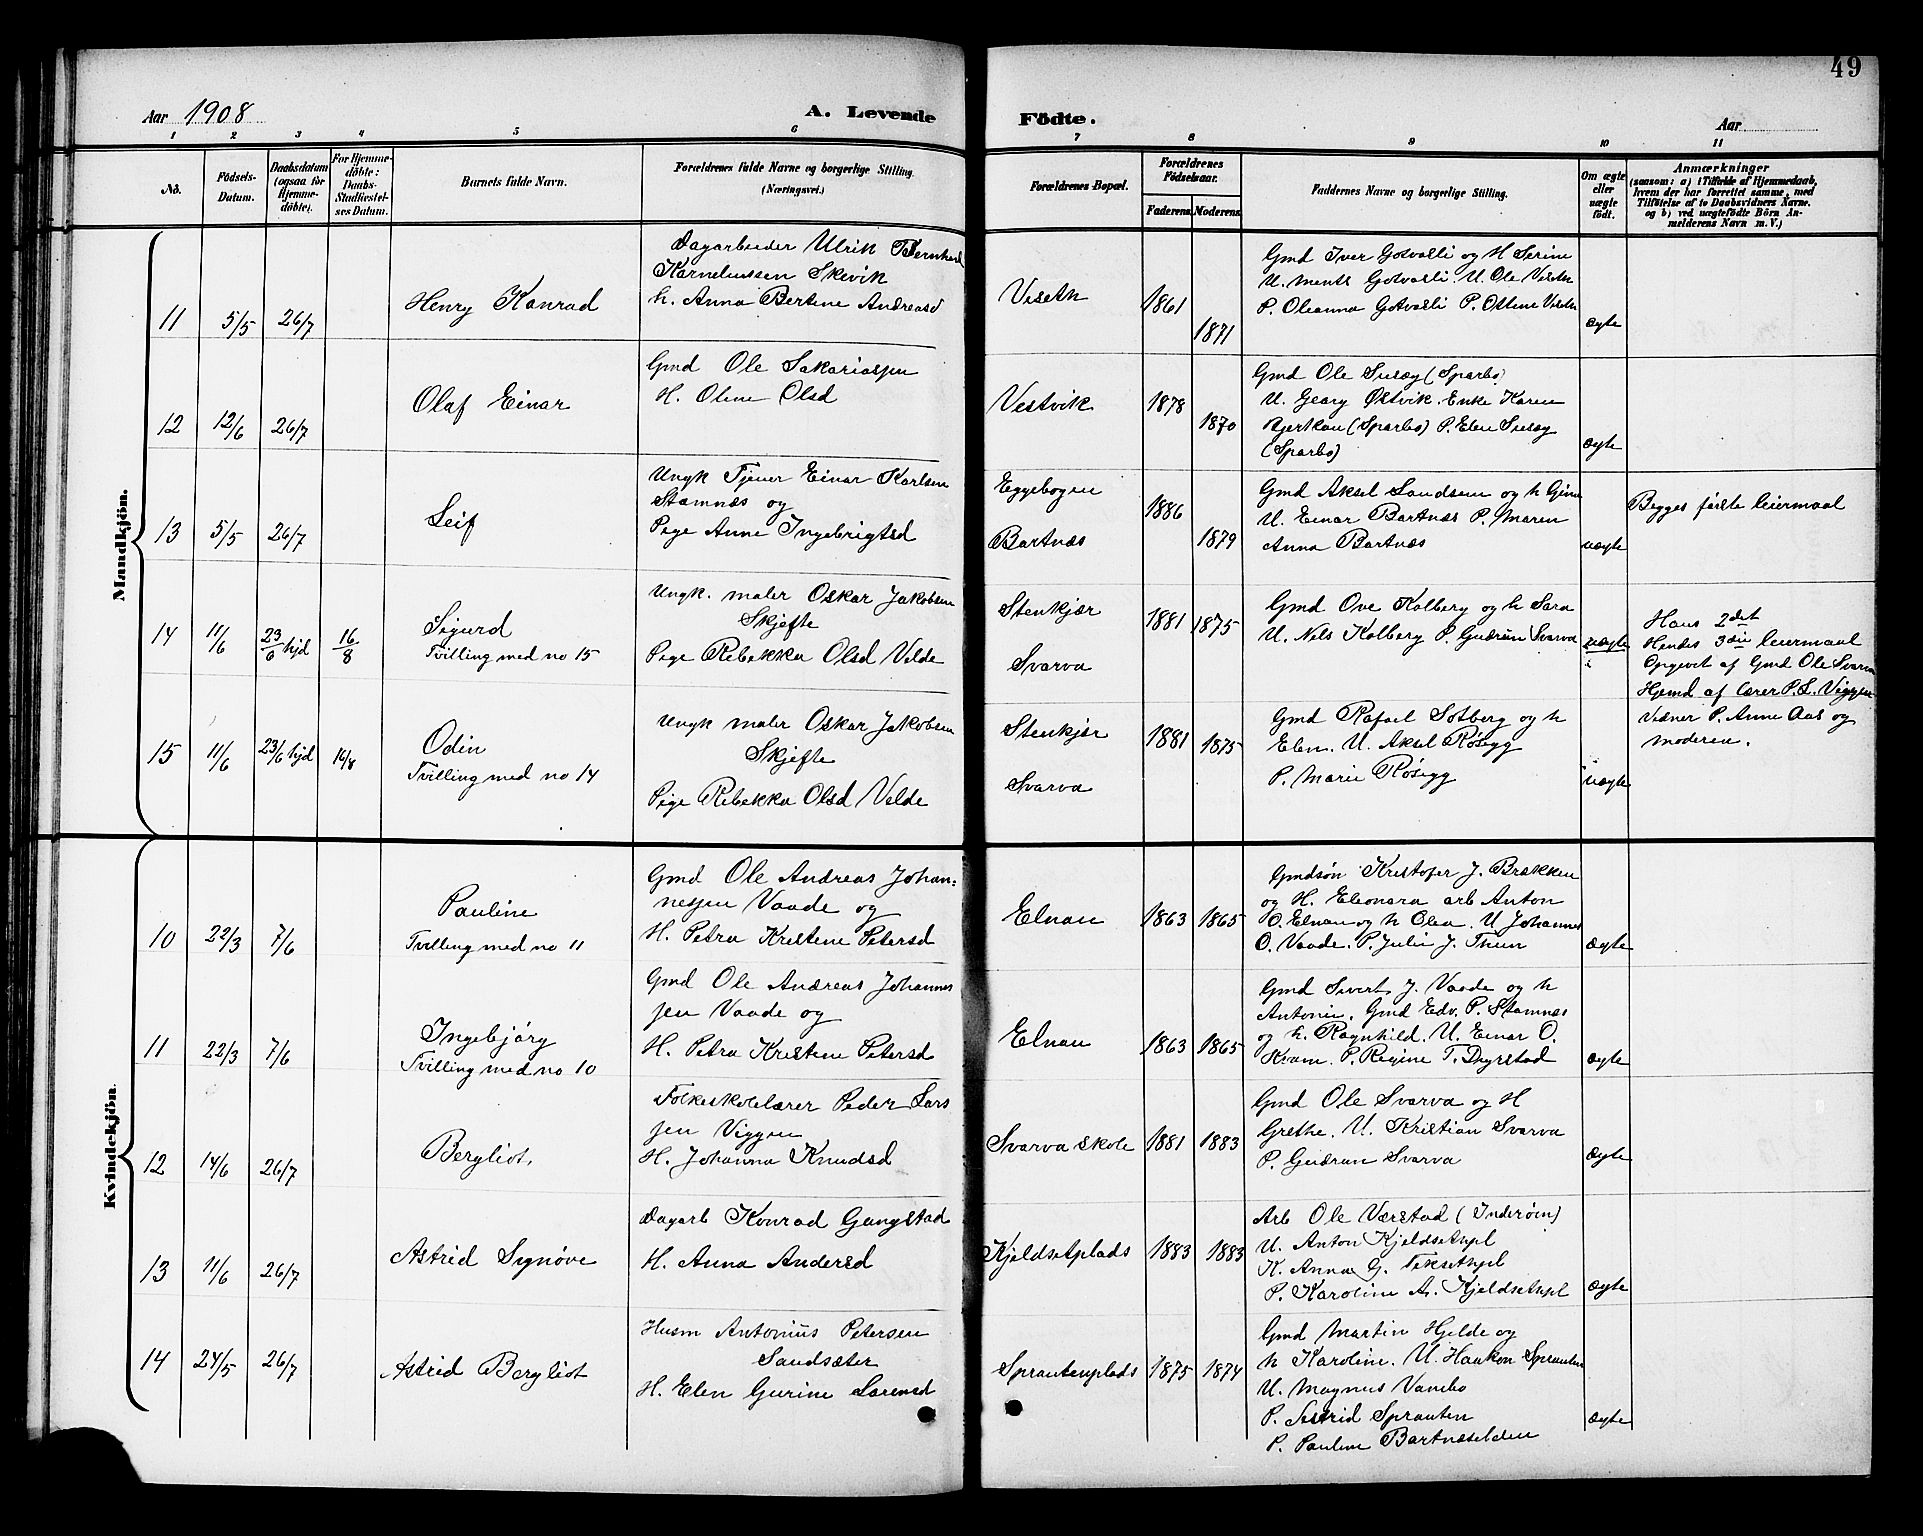 49
Aar 1908
A. Levende Födte.
Aar
1 2 3 4 5 6 7 8 9 10 11
No.
Födsels-Datum.
Daabsdatum (ogsaa for Hjemme-döbte).
For Hjemme-döbte: Daabs-Stadfæstel-ses Datum.
Barnets fulde Navn.
Forældrenes fulde Navne og borgerlige Stilling.
(Næringsvei.)
Forældrenes Bopæl.
Forældrenes Födselsaar.
Faderens. Moderens.
Faddernes Navne og borgerlige Stilling.
Om ægte eller uægte födt.
Anmærkninger
(saasom: a) i Tilfælde af Hjemmedaab, hvem der har forrettet samme, med Tilföielse af to Daabsvidners Navne, og b) ved uægtefödte Börn An-melderens Navn m. V.)
Mandkjön.
11 5/5 26/7 Henry Konrad
Dagarbeider Ulrik Bernhard
Korneliussen Skevik
h. Anna Bertine Andreasd
Viseth 1861 1871
Gmd Iver Gotvasli og H Serine
U. Ments Gotvasli. U. Ole Viseth
P. Oleanna Gotvasli P. Otline Viseth
ægte
12 12/6 26/7 Olaf Einar
Gmd Ole Sakariassen
H. Oline Olsd
Vestvik 1878 1870
Gmd Ole Susæg (Sparbo)
U. Georg Østvik. Enke Karen
Bjerkan (Sparbo) P. Elen Susæg
(Sparbo)
ægte
13 5/5 26/7 Leif
Ungk Tjener Einar Karlsen
Stamnæs og
Pige Anne Ingebrigtsd
Eggebogen
Bartnæs
1886 1879
Gmd Aksel Sandsem og h Gina
U. Einar Bartnæs P. Maren
Anna Bartnæs
uægte
Begges første leiermaal
14 11/6 23/6 hjd 16/8 Sigurd
Tvilling med no 15
Ungk. maler Oskar Jakobsen
Skjefte
Pige Rebekka Olsd Velde
Stenkjær
Svarva
1881 1875
Gmd Ove Kolberg og h Sara
U. Nels Kolberg P. Gudrun Svarva
uægte
Hans 2det
Hendes 3die leiermaal
Opgivet af Gmd Ole Svarva
Hjemd af Lærer P. L. Viggen
Vidner P. Anne Aas og
moderen.
15 11/6 23/6 hjd 16/8 Odin
Tvilling med no 14
Ungk maler Oskar Jakobsen
Skjefte
Pige Rebekka Olsd Velde
Stenkjær
Svarva
1881 1875
Gmd Rafael Solberg og h
Elen. U. Aksel Røsegg
P. Marie Røsegg
uægte
Kvindekjön.
10 22/3 7/6 Pauline
Tvilling med no 11
Gmd Ole Andreas Johan=
nesen Vaade og
H. Petra Kristine Petersd
Elnan 1863 1865
Gmdsøn Kristofer J. Brækken
og H. Eleonara arb Anton
O. Elnan og h Olea. U Johannes
O. Vaade. P. Julie J. Thun
ægte
11 22/3 7/6 Ingebjørg
Tvilling med no 10
Gmd Ole Andreas Johannes
sen Vaade og
H. Petra Kristine Petersd
Elnan 1863 1865
Gmd Sivert J. Vaade og h
Antonie. Gmd Edv. P. Stamnes
og h. Ragnhild. U. Einar O.
Kvam. P. Regine T. Dyrstad
ægte
12 14/6 26/7 Bergliot.
Folkeskolelærer Peder Lars
sen Viggen
H. Johanna Knudsd
Svarva skole 1881 1883
Gmd Ole Svarva og H
Grethe. U. Kristian Svarva
P. Gudrun Svarva
ægte
13 11/6 26/7 Astrid Synøve
Dagarb Konrad Gangstad
H. Anna Andersd
Kjeldsetplads 1883 1883
Arb Ole Værstad (Inderøen)
U. Anton Kjeldsethpl
K. Anna G. Teksethpl
P. Karoline A. Kjeldsethpl
ægte
14 24/5 26/7 Astrid Bergliot
Husm Antonius Petersen
Sandsæter
H. Elen Gurine Lorensd
Sprautenplads 1875 1874
Gmd Martin Hjelde og
h Karoline. U. Haakon Sprauten
U. Magnus Vambo
P. Astrid Sprauten
P. Pauline Bartnæselden
ægte